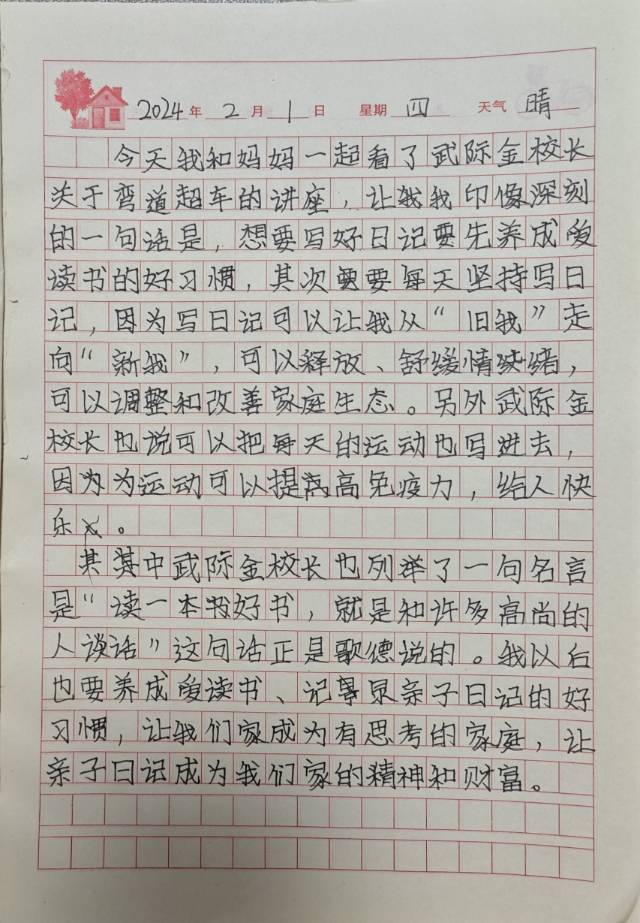 2024年2月1日 星期四 天气晴
今天我和妈妈一起看了武际金校长
关于弯道超车的讲座，让我我印像深刻
的一句话是，想要写好日记要先养成爱
读书的好习惯，其次要要每天坚持写日
记，因为写日记可以让我从“旧我”走
向“新我”，可以释放、舒缓情绪，
可以调整和改善家庭生态。另外武际金
校长也说可以把每天的运动也写进去，
因为为运动可以提高高免疫力，给人快
乐。
其其中武际金校长也列举了一句名言
是“读一本好书，就是和许多高尚的
人谈话”这句话正是歌德说的。我以后
也要养成爱读书、记录亲子日记的好
习惯，让我们家成为有思考的家庭，让
亲子日记成为我们家的精神和财富。